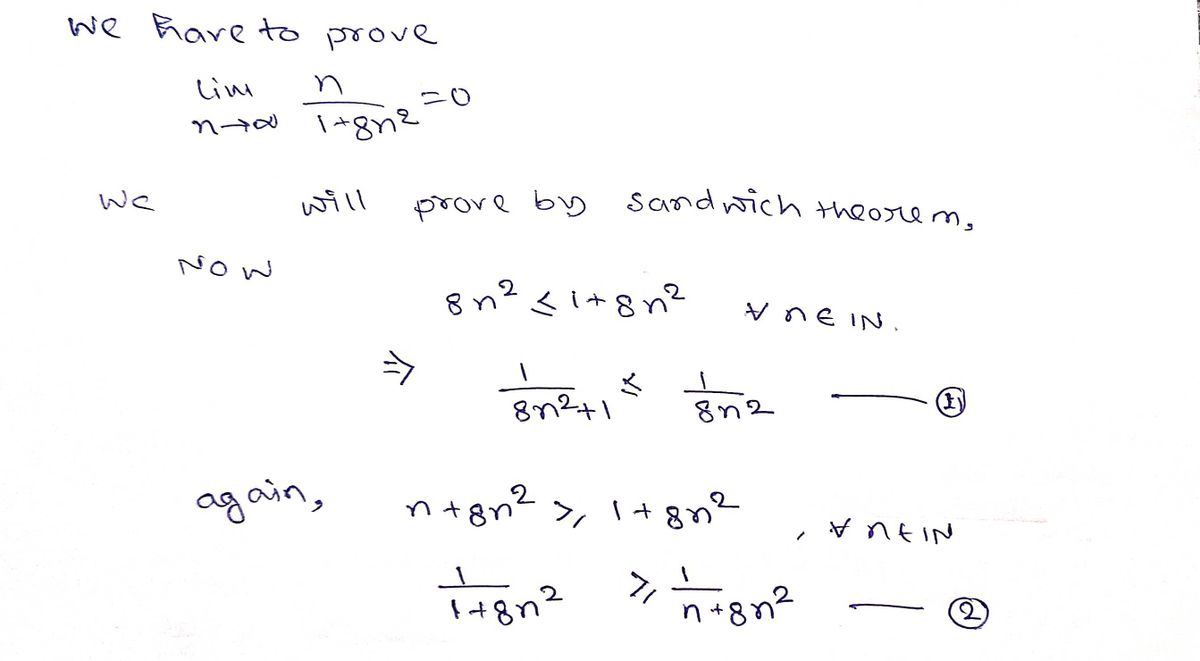 We have to prove
lim n→∞ n/(1+8n²) = 0
We will prove by sandwich theorem,
Now
8n² ≤ 1+8n² ∀ n ∈ IN.
⇒ 1/(8n²+1) ≤ 1/(8n²) —— ①
again, n+8n² ≥ 1+8n² , ∀ n ∈ IN
1/(1+8n²) ≥ 1/(n+8n²) —— ②